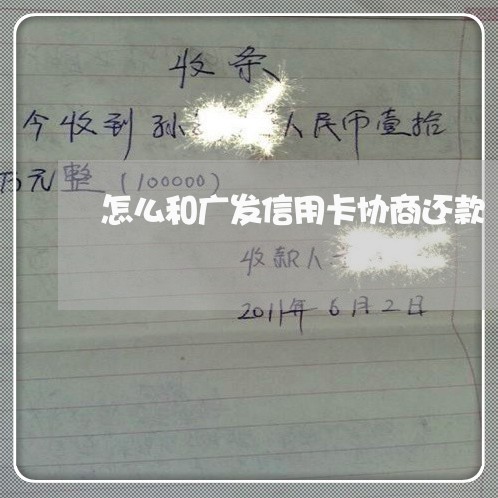 收条
今收到孙 人民币壹拾
万元整(100000)
怎么和广发信用卡协商还款
收款人
2011年6月2日